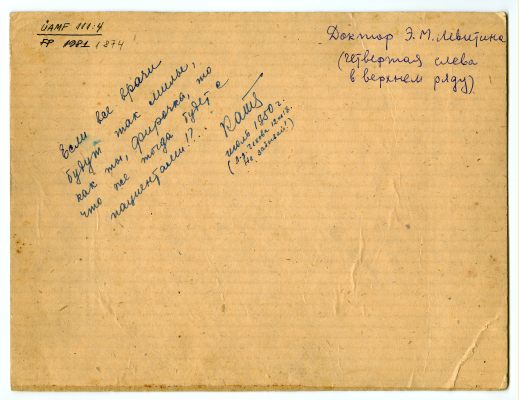 ÜAMF 111:4
FP 1981 1874
Доктор Э.М. Левитина
(четвертая слева
в верхнем ряду)
Если все врачи
будут так милы,
как ты, Фирочка, то
что же тогда будет с
пациентами!?...
Катя
июль 1950 г.
не забывай!)